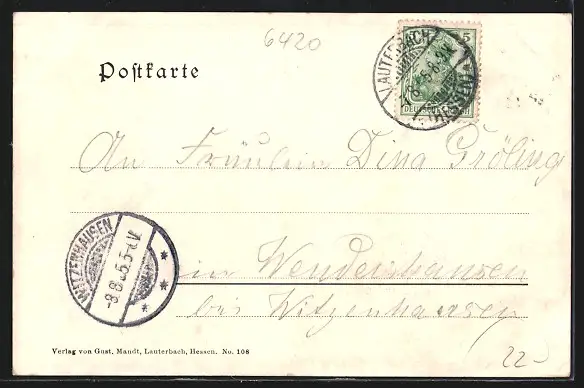 6420
Postkarte
LAUTERBACH
5
DEUTSCHES REICH
An Fräulein Dina Gröling
WITZENHAUSEN
-8.8.05.5-6.V.
* * *
in Wendershausen
bei Witzenhausen
Verlag von Gust. Mandt, Lauterbach, Hessen. No. 108
22-